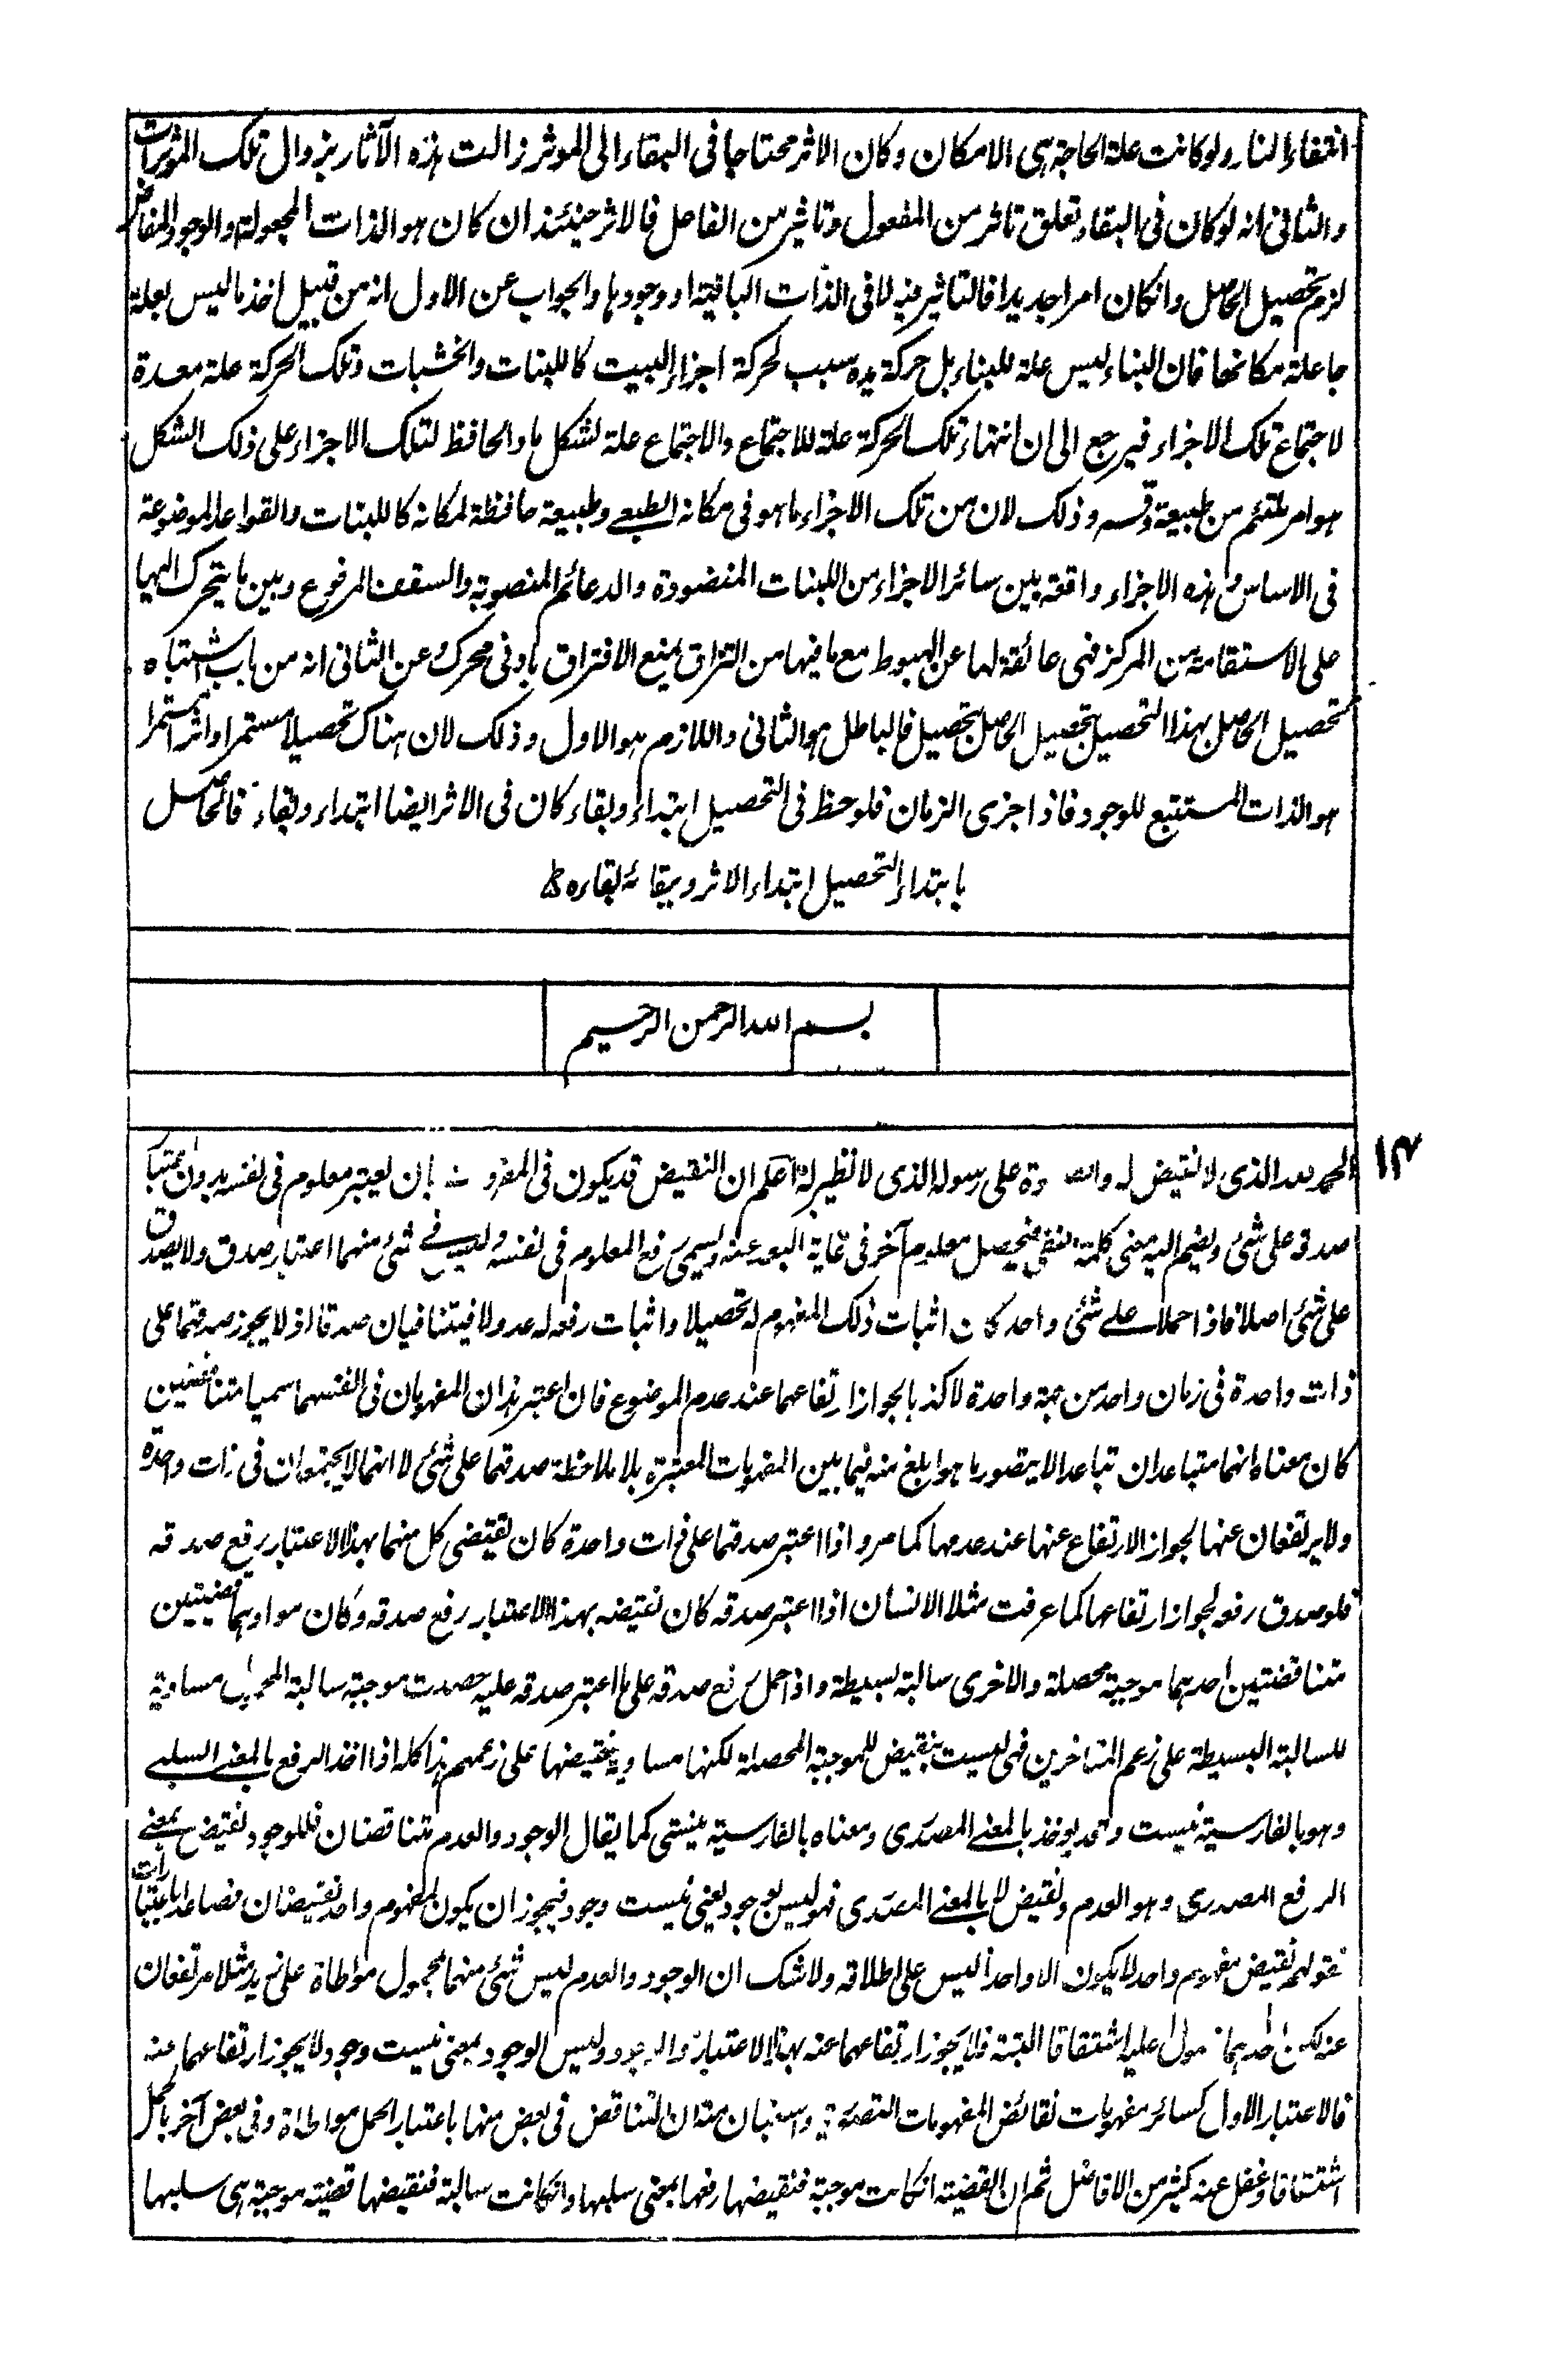 انتفاء النار ولو كانت علة الحاجة هى الامكان وكان الاثر محتاجا فى البقاء الى الموثر زالت هذه الآثار بزوال تلك الموثرات
والثانى انه لو كان فى البقاء تعلق تاثر من المفعول وتاثير من الفاعل فالاثر حينئذ ان كان هو الذات المجعولة والوجود المفاض
لزم تحصيل الحاصل وانكان امرا جديدا فالتاثير فيه لا فى الذات الباقية او وجودها والجواب عن الاول انه من قبيل اخذ ما ليس بعلة
جا علة مكانها فان البناء ليس علة للبناء بل حركة يده سبب لحركة اجزاء البيت كاللبنات والخشبات وتلك الحركة علة معدة
لاجتماع تلك الاجزاء فيرجع الى ان انتهاء تلك الحركة علة للاجتماع والاجتماع علة لشكل ما والحافظ لتلك الاجزاء على ذلك الشكل
هو امر ملتئم من طبيعة وقسر وذلك لان من تلك الاجزاء ما هو فى مكانه الطبعے وطبيعة حافظة لمكانه كاللبنات والقواعد الموضوعة
فى الاساس وهذه الاجزاء واقعة بين سائر الاجزاء من اللبنات المنضودة والدعائم المنصوبة والسقف المرفوع وبين ما يتحرك اليها
على الاستقامة من المركز فهى عائقة لها عن الهبوط مع ما فيها من التزاق يمنع الافتراق بادنى محرك وعن الثانى انه من باب اشتباه
تحصيل الحاصل بهذا التحصيل بتحصيل الحاصل بتحصيل فالباطل هو الثانى واللازم هو الاول وذلك لان هناك تحصيلا مستمرا واثرا مستمرا
هو الذات المستتبع للوجود فاذا جزى الزمان فلوحظ فى التحصيل ابتداء وبقاء كان فى الاثر ايضا ابتداء وبقاء فالحاصل
بابتداء التحصيل ابتداء الاثر وببقائه بقاءه
بسم الله الرحمن الرحيم
١٣ الحمد لله الذى لا نقيض له على رسوله الذى لا نظير له اعلم ان النقيض قد يكون فى بان يعتبر معلوم فى نفسه بدون اعتبار
صدقه على شئ ويضم اليه معنى كلمة النفى فيحصل معلوم آخر فى غاية البعد عنه ويسمى رفع المعلوم فى نفسه وليس فے شئ منهما اعتبار صدق ولا يصدق
على شئ اصلا فاذا حملا علے شئ واحد كان اثبات ذلك المفهوم له تحصيلا واثبات رفعه له عدولا فيتنافيان صدقا اذ لا يجوز صدقهما على
ذات واحدة فى زمان واحد من جهة واحدة لا كذبا لجواز ارتفاعهما عند عدم الموضوع فان اعتبر هذان المفهومان فى انفسهما سميا متناقضين
كان معناه انهما متباعدان تباعدا لا يتصور ما هو ابلغ منه فيما بين المفهومات المعتبرة بلا ملاحظة صدقهما على شئ لا انهما لا يجتمعان فى ذات واحدة
ولا يرتفعان عنها لجواز الارتفاع عنها عند عدمها كما مر واذا اعتبر صدقهما على ذات واحدة كان نقيض كل منهما بهذا الاعتبار رفع صدقه
فلو صدق رفعه لجواز ارتفاعهما كما عرفت مثلا الانسان اذا اعتبر صدقه كان نقيضه بهذا الاعتبار رفع صدقه وكان قضيتين
متناقضتين احدهما موجبة محصلة والاخرى سالبة بسيطة واذا حمل رفع صدقه على ما اعتبر صدقه عليه حصلت موجبة سالبة المحمول مساوية
للسالبة البسيطة على زعم المتاخرين فهى ليست بنقيض للموجبة المحصلة لكنها مساوية لنقيضها على زعمهم هذا كله اذا اخذ الرفع بالمعنے السلبے
وهو بالفارسية نيست وقد يوخذ بالمعنے المصدرى ومعناه بالفارسية نيستى كما يقال الوجود والعدم متناقضان فللوجود نقيض بمعنے
الرفع المصدرى وهو العدم ونقيض لا بالمعنے المصدرى فهو ليس بوجود يعنى نيست وجود فيجوز ان يكون لمفهوم واحد نقيضان فصاعدا باعتبارات
فقولهم نقيض مفهوم واحد لا يكون الا واحدا ليس على اطلاقه ولا شك ان الوجود والعدم ليس شئ منهما بمحمول مواطاة على زيد مثلا مرتفعان
عنه لكن احدهما محمول عليه اشتقاقا البتة فلا يجوز ارتفاعهما عنه بهذا الاعتبار والوجود وليس الوجود بمعنى نيست وجود لا يجوز ارتفاعهما عنه
فالاعتبار الاول كسائر مفهومات نقائض المفهومات التصورية ان التناقض فى بعض منها باعتبار الحمل مواطاة وفى بعض آخر بالحمل
اشتقاقا وغفل عنه كثير من الافاضل ثم ان القضية انكانت موجبة فنقيضها رفعها بمعنى سلبها وانكانت سالبة فنقيضها قضية موجبة هى سلبها